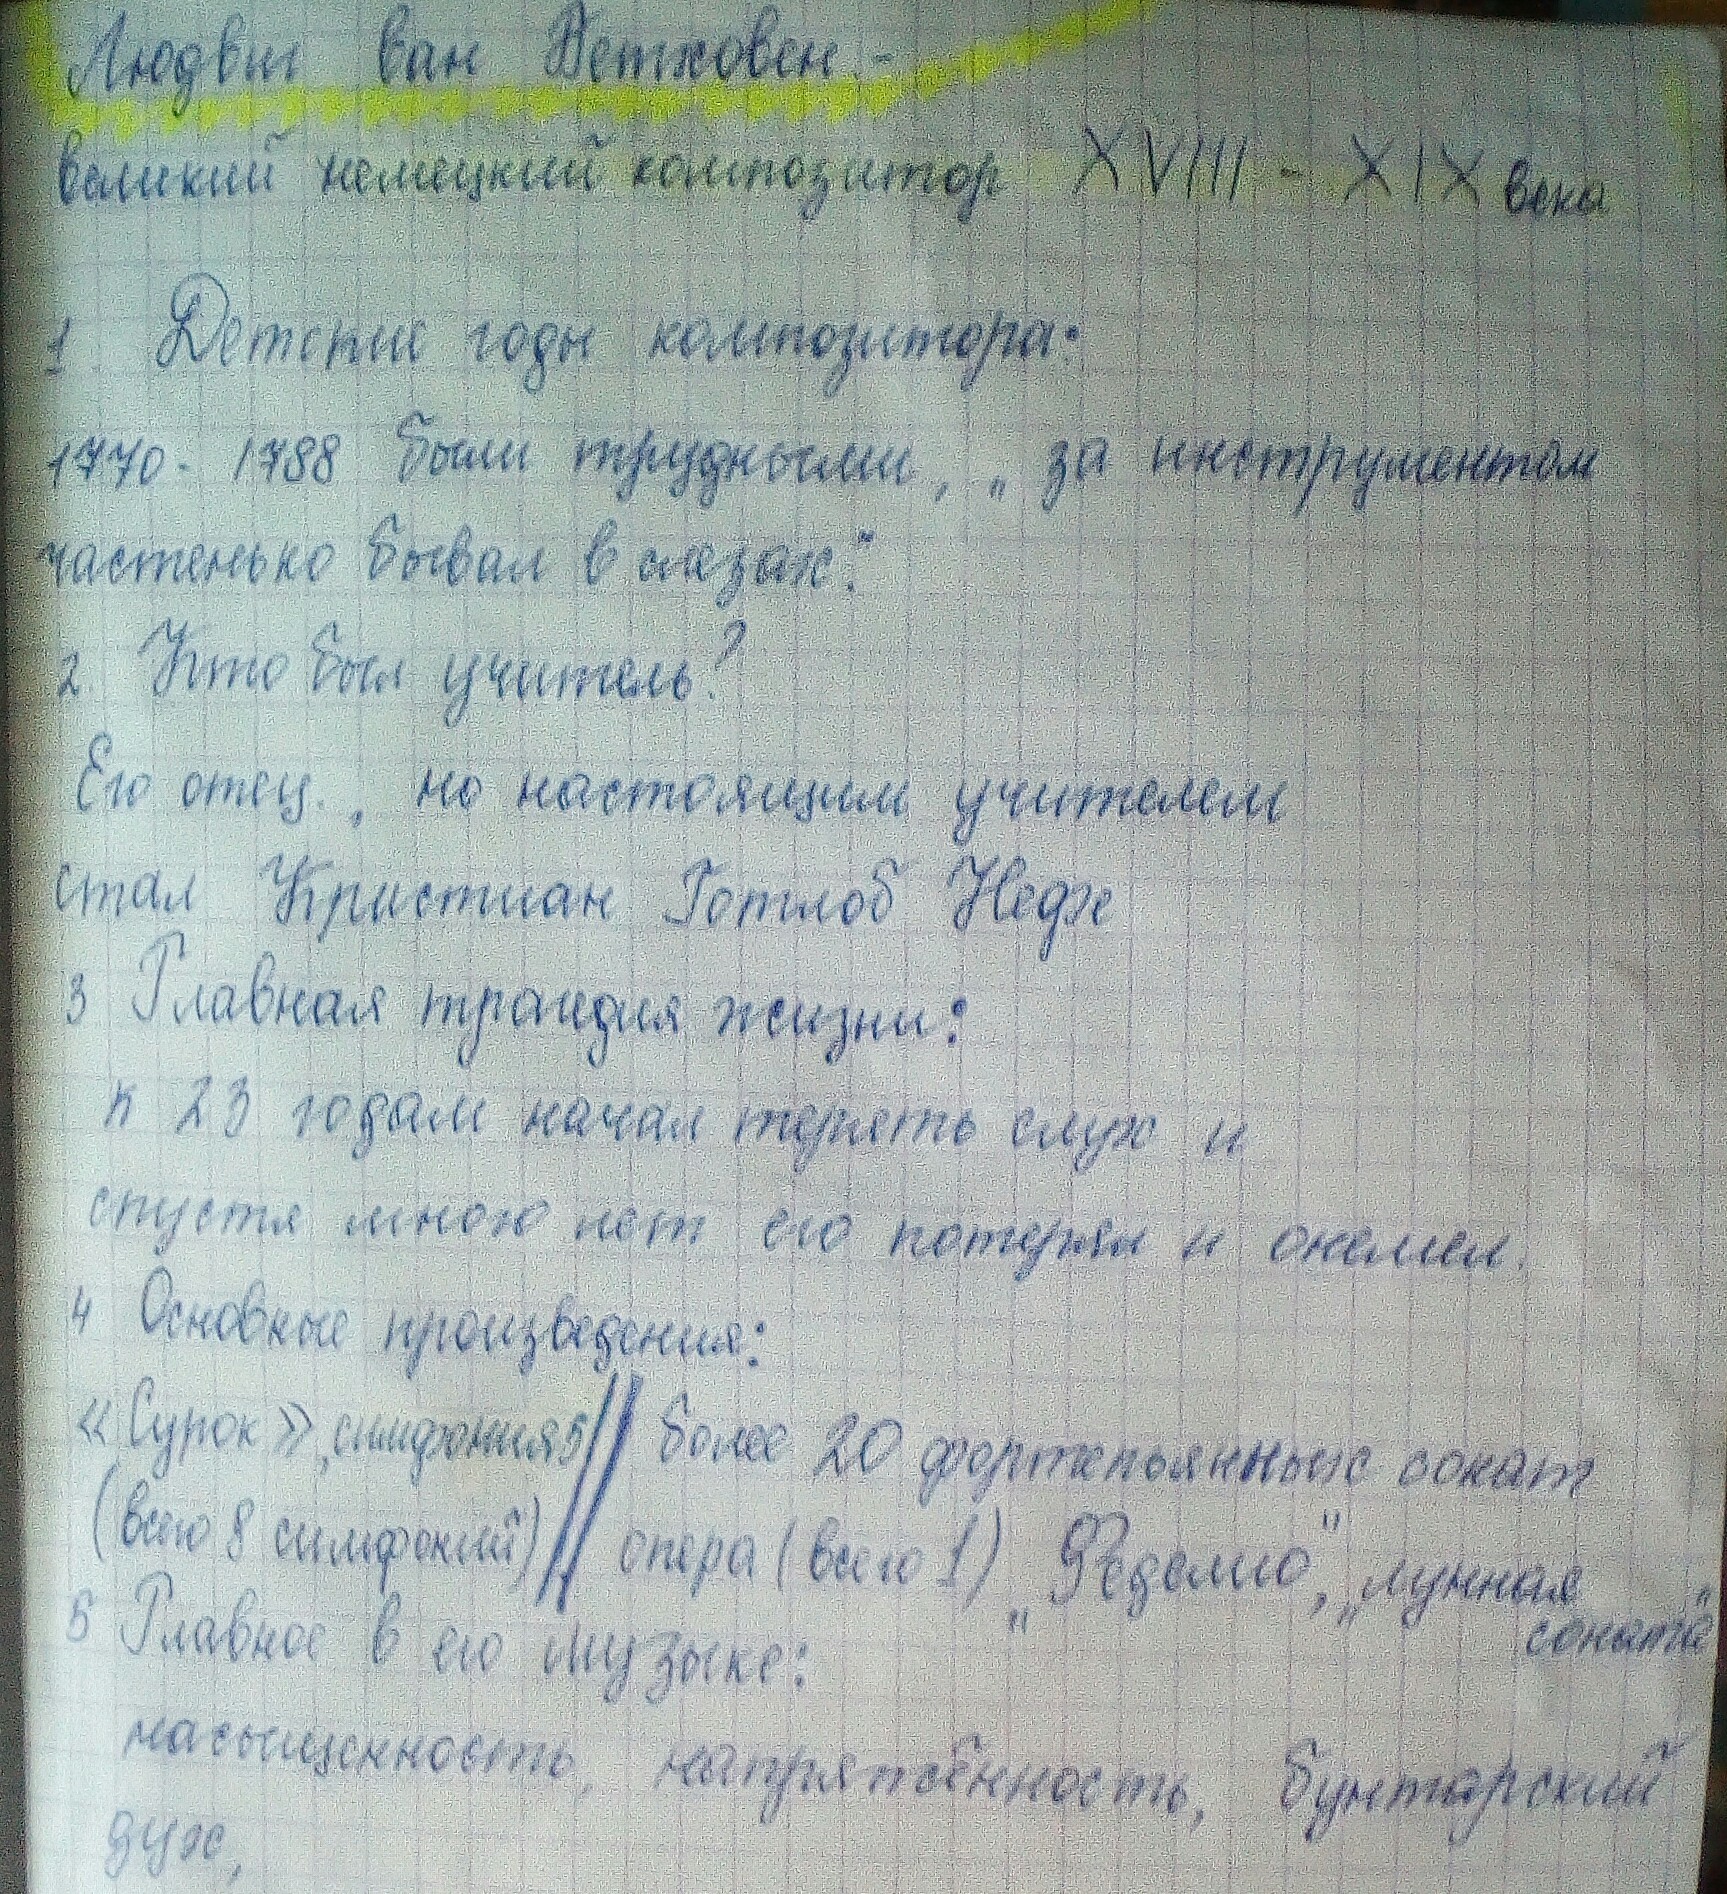 Людвиг ван Бетховен -
великий немецкий композитор XVIII - XIX века
1. Детские годы композитора:
1770 - 1788 были трудными, „за инструментом
частенько бывал в слезах".
2. Кто был учитель?
Его отец, но настоящим учителем
стал Кристиан Готлоб Нефе
3 Главная трагидия жизни:
к 23 годам начал терять слух и
спустя много лет его потерял и онемел.
4 Основные произведения:
«Сурок», симфония 5 // более 20 фортепьянных сонат
(всего 8 симфоний) // опера (всего 1) „Феделио", „лунная
соната"
5 Главное в его музыке:
насыщенность, напряжённость, бунтарский
дух,